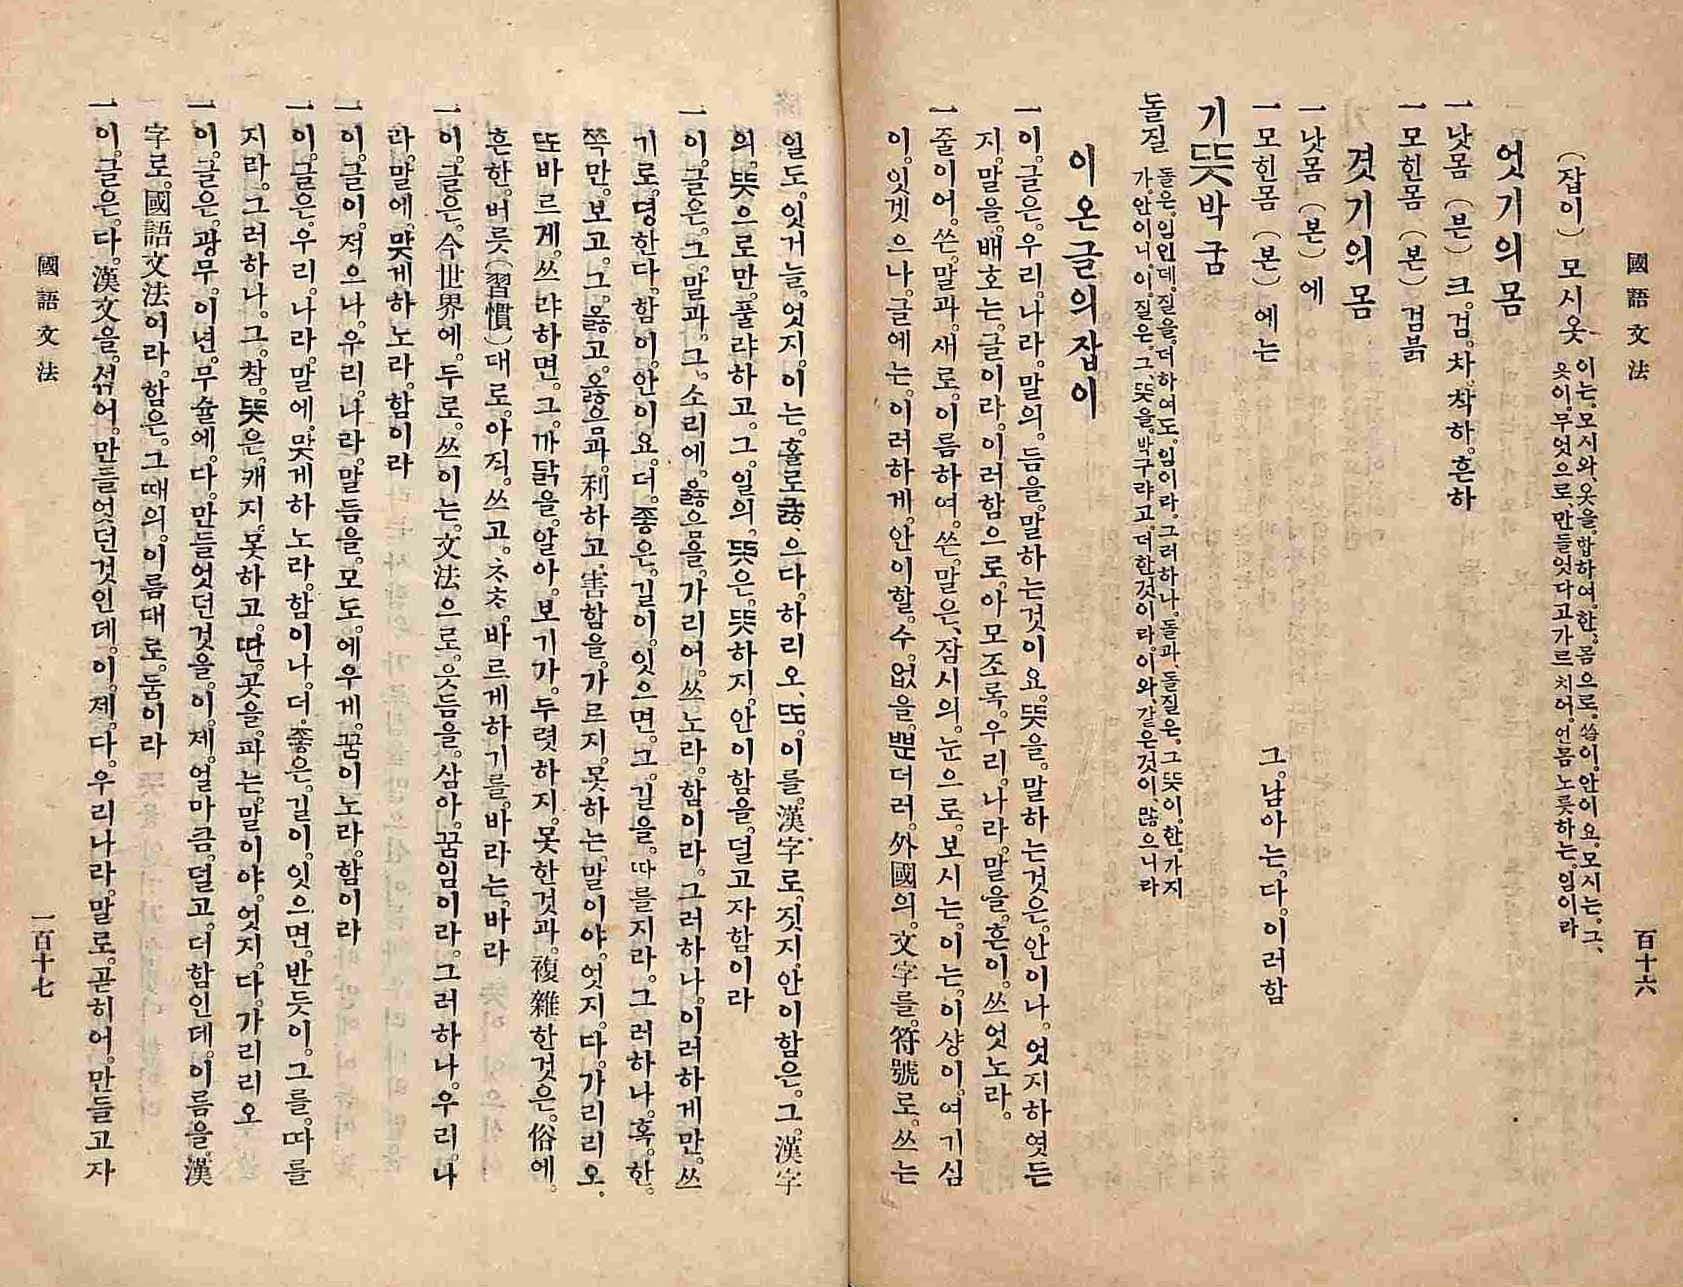 國語文法
百十六
(잡이) 모시옷 이는。모시와、옷을。합하여。한。몸으로。씀이。안이요。모시는。그、
옷이。무엇으로、만들엇다고가르치어。언몸노릇하는。임이라
엇기의몸
一낫몸 (본) 크。검。차、착하。흔하
一모힌몸 (본) 검붉
겻기의몸
一낫몸 (본)에
一모힌몸 (본)에는
그。남아는。다。이러함
기뜻박굼
돌질 돌은。임인데。질을。더하여도。임이라。그러하나。돌과、돌질은。그뜻이。한。가지
가。안이니이。질은。그、뜻을。박구랴고。더한것이라。이와、같은것이、많으니라
이온글의잡이
一이。글은。우리。나라。말의。듬을。말하는것이요。뜻을。말하는것은。안이나。엇지하엿든
지。말을。배호는。글이라。이러함으로。아모조록。우리。나라。말을。흔이。쓰엇노라。
一줄이어。쓴。말과。새로。이름하여。쓴。말은、잠시의。눈으로。보시는。이는。이상이。여기심
이。잇겟으나。글에는。이러하게。안이할。수。없을。뿐더러。外國의。文字를。符號로。쓰는
일도。잇거늘。엇지。이는。홀로긇。으다。하리오、또。이를。漢字로。짓지안이함은。그。漢字
의。뜻으로만。풀랴하고。그。일의。뜻은。뜻하지。안이함을。덜고자함이라
一이。글은。그。말과。그。소리에。옳음을。가리어。쓰노라。함이라。그러하나。이러하게만。쓰
기로。뎡한다。함이。안이요。더。좋은。길이。잇으면。그。길을。따를지라。그러하나。혹。한。
쪽만。보고。그。옳고。옳음과。利하고害함을。가르지。못하는。말이야。엇지。다。가리리오、
또바르게。쓰랴하면。그。까닭을。알아。보기가。두렷하지。못한것과。複雜한것은。俗에。
흔한。버릇(習慣)대로。아직。쓰고。츠츠。바르게하기를。바라는。바라
一이。글은。今世界에。두로。쓰이는。文法으로。읏듬을。삼아。꿈임이라。그러하나。우리。나
라。말에。맞게하노라。함이라
一이。글이。적으나。우리。나라。말듬을。모도。에우게。꿈이노라。함이라
一이。글은。우리。나라。말에。맞게하노라。함이나。더。좋은。길이。잇으면。반듯이。그를。따를
지라。그러하나。그。참。뜻은。캐지。못하고。딴。곳을。파는。말이야。엇지。다。가리리오
一이。글은。광무。이년。무슐에。다。만들엇던것을。이。제。얼마큼。덜고。더함인데。이름을。漢
字로。國語文法이라。함은。그때의。이름대로。둠이라
一이。글은。다。漢文을。섞어。만들엇던것인데。이。제。다。우리나라。말로。곧히어。만들고자
國語文法
一百十七